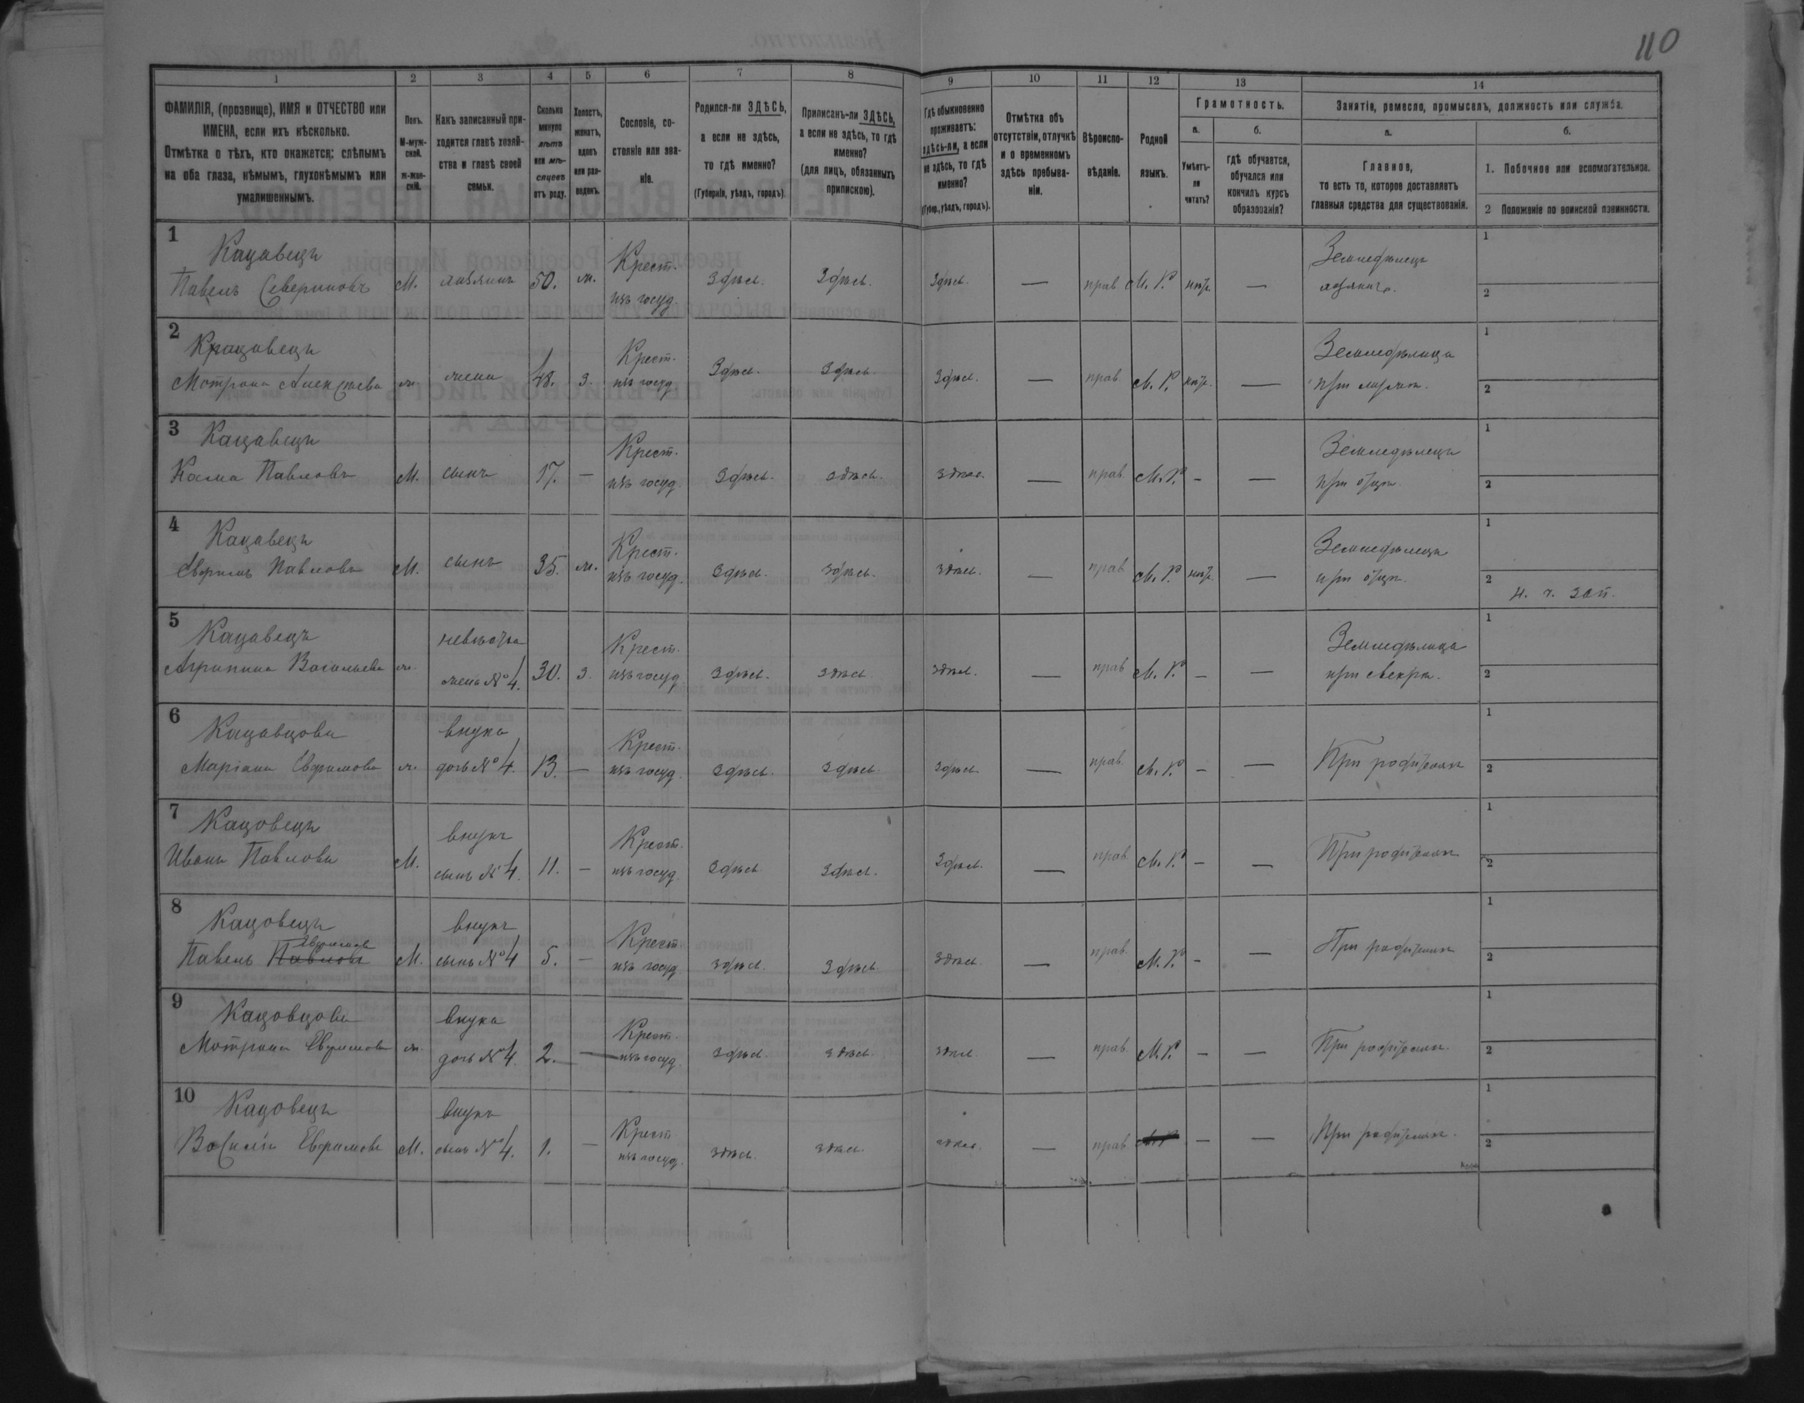 110
1 2 3 4 5 6 7 8 9 10 11 12 13 14
ФАМИЛІЯ, (прозвище), ИМЯ и ОТЧЕСТВО или
ИМЕНА, если ихъ нѣсколько.
Отмѣтка о тѣхъ, кто окажется: слѣпымъ
на оба глаза, нѣмымъ, глухонѣмымъ или
умалишеннымъ.
Полъ.
М-муж-
ской.
ж-жен-
скій.
Какъ записанный при-
ходится главѣ хозяй-
ства и главѣ своей
семьи.
Сколько
минуло
лѣтъ
или мѣ-
сяцевъ
отъ роду.
Холостъ,
женатъ,
вдовъ
или раз-
веденъ.
Сословіе, со-
стояніе или зва-
ніе.
Родился-ли ЗДѢСЬ,
а если не здѣсь,
то гдѣ именно?
(Губернія, уѣздъ, городъ).
Приписанъ-ли ЗДѢСЬ,
а если не здѣсь, то гдѣ
именно?
(для лицъ, обязанныхъ
припискою).
Гдѣ обыкновенно
проживаетъ:
здѣсь-ли, а если
не здѣсь, то гдѣ
именно?
(Губер., уѣздъ, городъ).
Отмѣтка объ
отсутствіи, отлучкѣ
и о временномъ
здѣсь пребыва-
ніи.
Вѣроиспо-
вѣданіе.
Родной
языкъ.
Грамотность.
а.
Умѣетъ-
ли
читать?
б.
гдѣ обучается,
обучался или
кончилъ курсъ
образованія?
Занятіе, ремесло, промыселъ, должность или служба.
а.
Главное,
то есть то, которое доставляетъ
главныя средства для существованія.
б.
1. Побочное или вспомогательное.
2 Положеніе по воинской повинности.
1 Кацавецъ Крест. Земледѣлецъ 1
Павелъ Севериновъ М. хозяинъ 50. ж. изъ госуд. Здѣсь. Здѣсь. Здѣсь. — прав. М. Р. нѣтъ — хозяинъ. 2
2 Кацавецъ Крест. Земледѣлица 1
Мотрона Алексѣева ж. жена 48. з. изъ госуд. Здѣсь. Здѣсь. Здѣсь. — прав. М. Р. нѣтъ. — при мужѣ. 2
3 Кацавецъ Крест. Земледѣлецъ 1
Козма Павловъ М. сынъ 17. — изъ госуд. Здѣсь. здѣсь. здѣсь. — прав. М. Р. — — при отцѣ. 2
4 Кацавецъ Крест. Земледѣлецъ 1
Евфимъ Павловъ М. сынъ 35. ж. изъ госуд. Здѣсь. здѣсь. здѣсь. — прав. М. Р. нѣтъ. — при отцѣ. 2
н. ч. зап.
5 Кацавецъ невѣстка Крест. Земледѣлица 1
Агрипина Васильева ж. жена № 4. 30. з. изъ госуд. Здѣсь. здѣсь здѣсь. — прав. М. Р. — — при свекрѣ. 2
6 Кацавцова внука Крест. 1
Маріана Евфимова ж. дочь № 4. 13. — изъ госуд. Здѣсь. Здѣсь. Здѣсь. — прав. М. Р. — — При родителяхъ 2
7 Кацовецъ внукъ Крест. 1
Иванъ Павловъ М. сынъ № 4. 11. — изъ госуд. Здѣсь. Здѣсь. Здѣсь. — прав. М. Р. — — При родителяхъ 2
8 Кацовецъ внукъ Крест. 1
Павелъ Павловъ Евфимовъ М. сынъ № 4 5. — изъ госуд. здѣсь. Здѣсь. Здѣсь. — прав. М. Р. — — При родителяхъ 2
9 Кацовцова внука Крест. 1
Мотрона Евфимова ж. дочь № 4. 2. — изъ госуд. здѣсь. здѣсь. здѣсь. — прав. М. Р. — — При родителяхъ. 2
10 Кацовецъ внукъ Крест. 1
Василій Евфимовъ М. сынъ № 4. 1. — изъ госуд. здѣсь. здѣсь. здѣсь. — прав. М. Р. — — При родителяхъ. 2